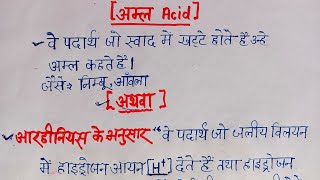 [अम्ल Acid]
• वे पदार्थ जो स्वाद में खट्टे होते हैं उन्हे
अम्ल कहते हैं।
जैसेः निम्बू, आँवला
[अथवा]
• आरहीनियस के अनुसार "वे पदार्थ जो जलीय विलयन
में हाइड्रोजन आयन [H⁺] देते हैं तथा हाइड्रोजन